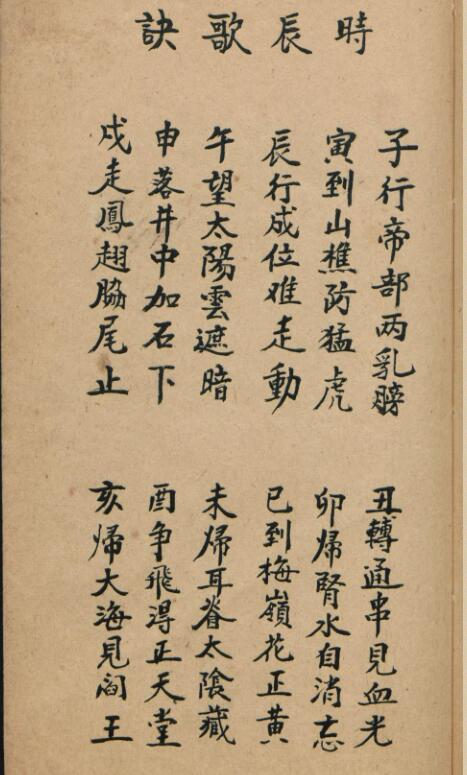 時辰歌訣
子行帝部两乳膀
丑轉通串見血光
寅到山樵防猛虎
卯帰腎水自消忘
辰行成位难走動
巳到梅嶺花正黄
午望太陽雲遮暗
未帰耳脊太陰藏
申落井中加石下
酉争飛淂正天堂
戍走鳳翅脇尾止
亥帰大海見阎王